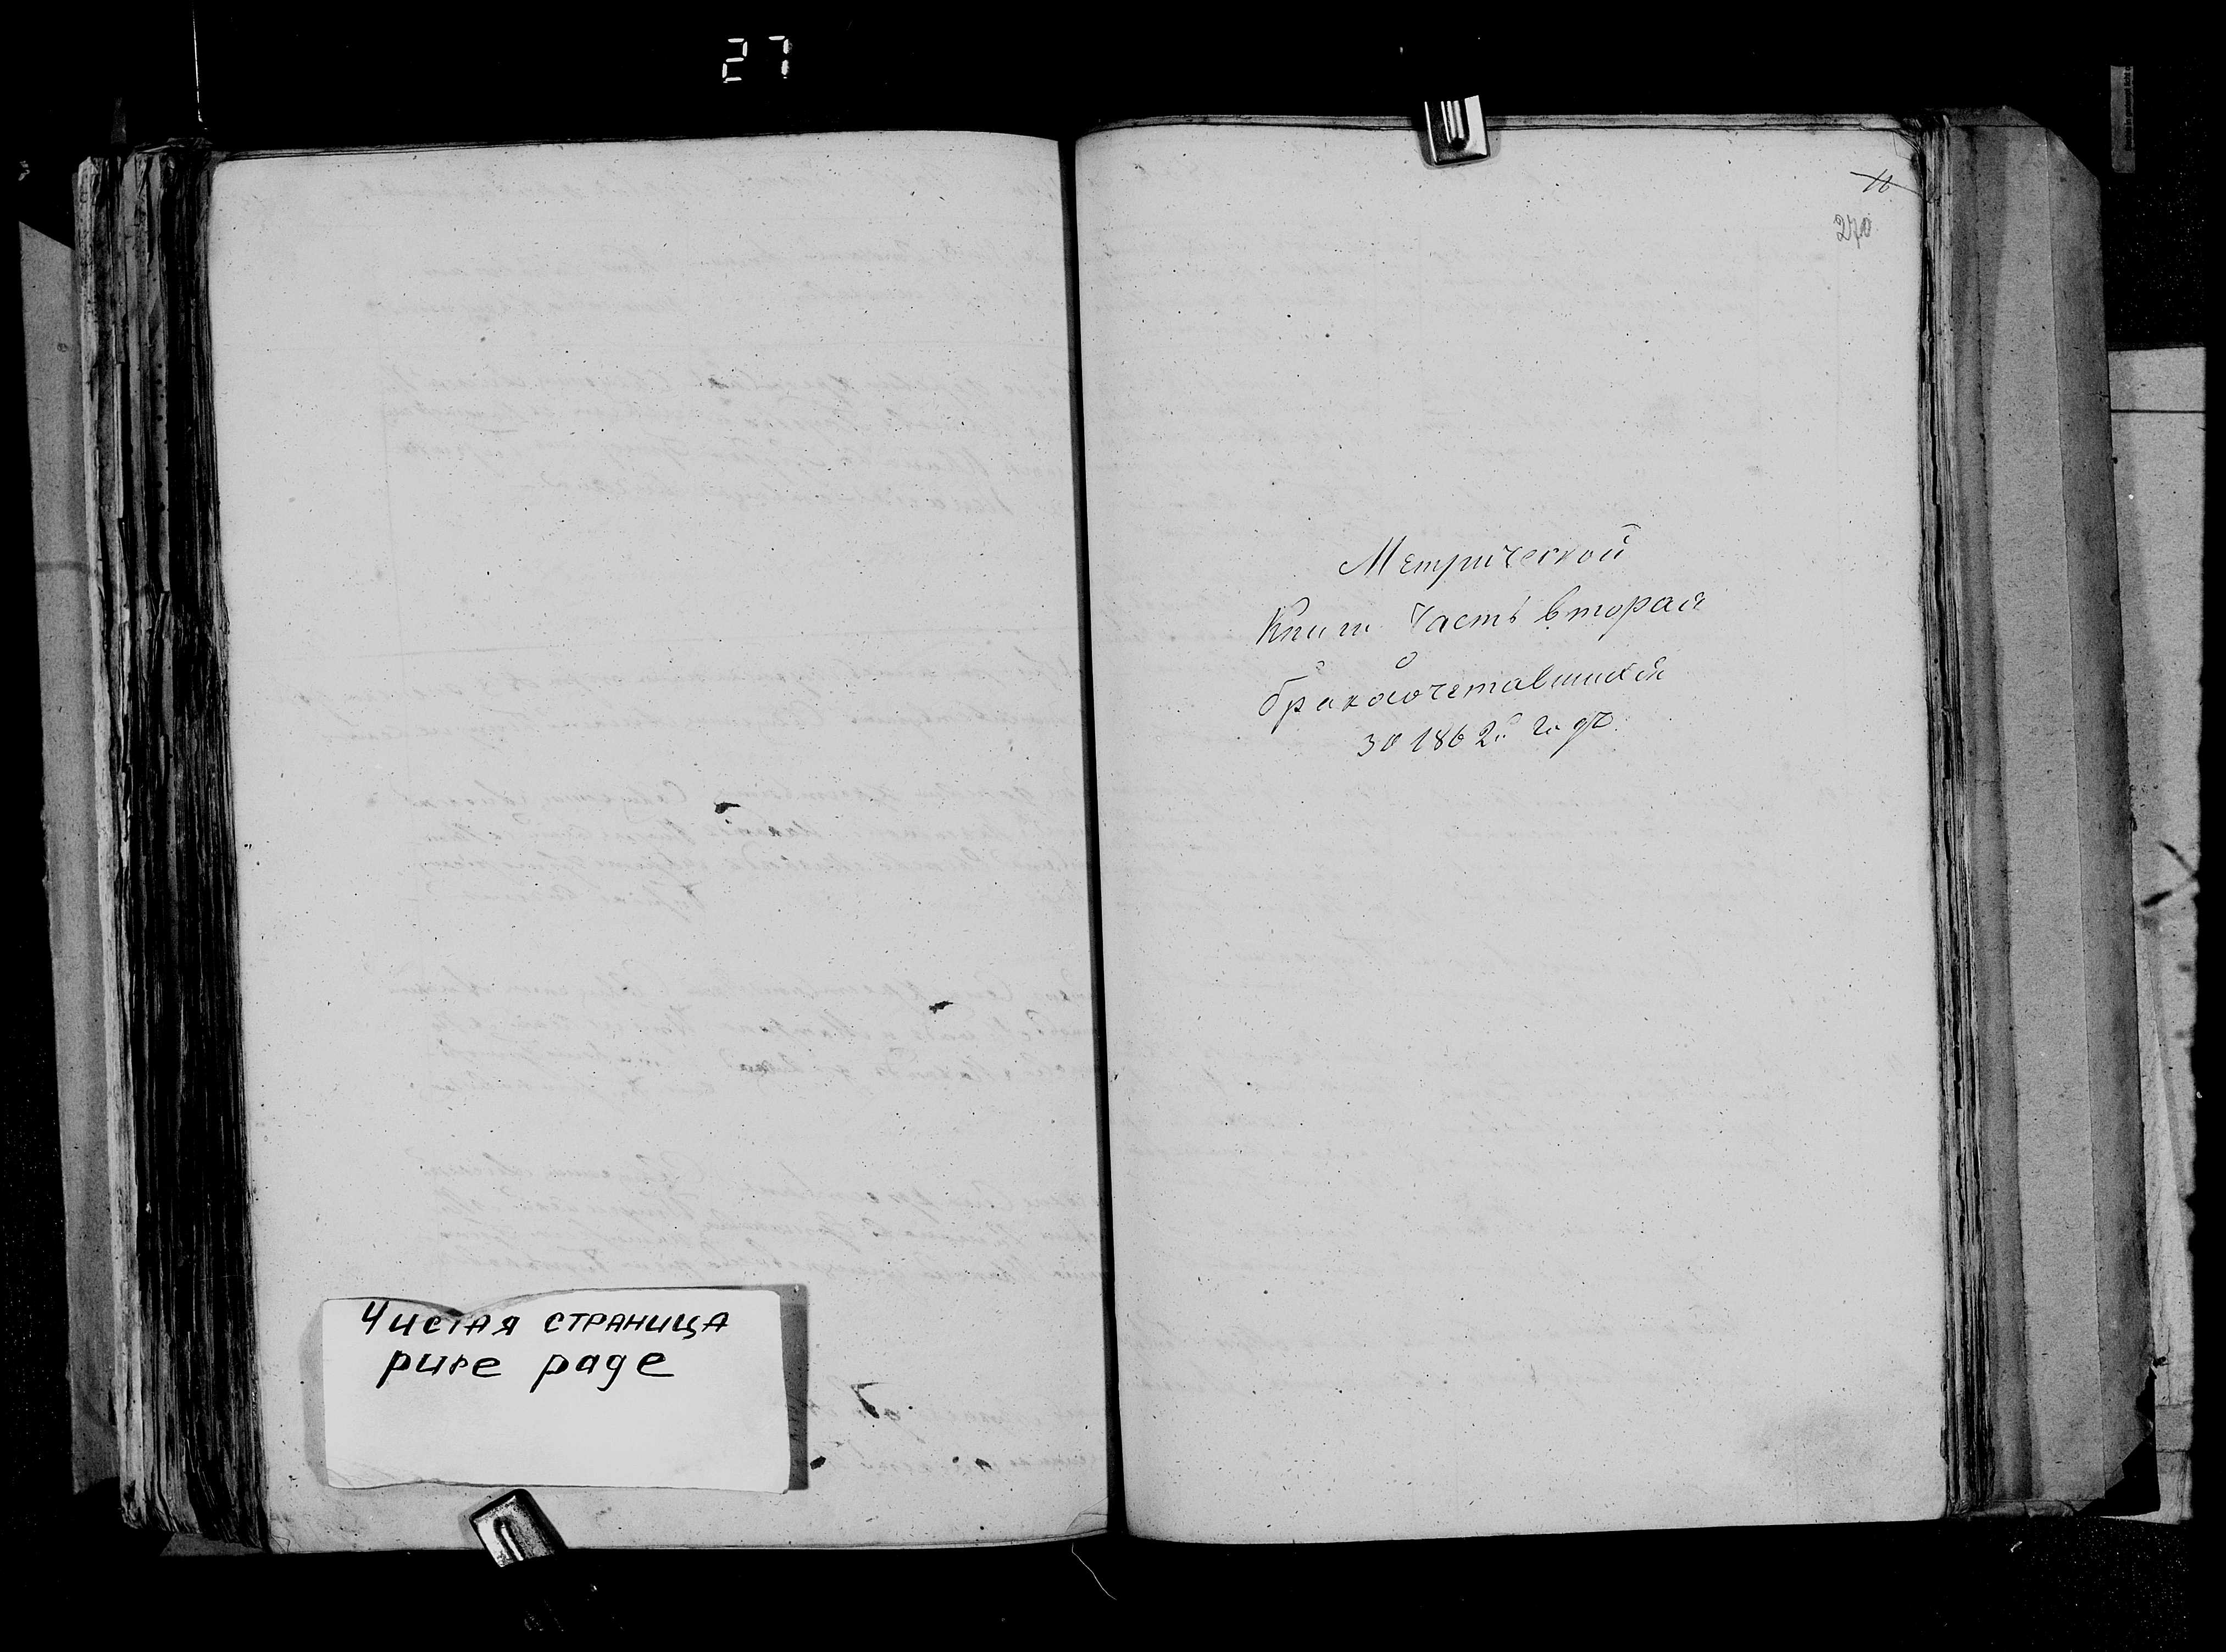 27
Чистая страница
pure page
11
270
Метрической
Книги Часть вторая
о
бракосочетавшихся
за 1862й годъ.